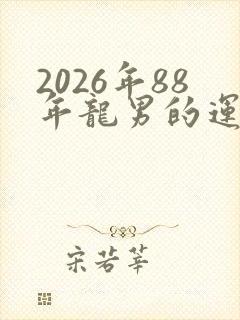 2026年88
年龍男的運
宋若莘